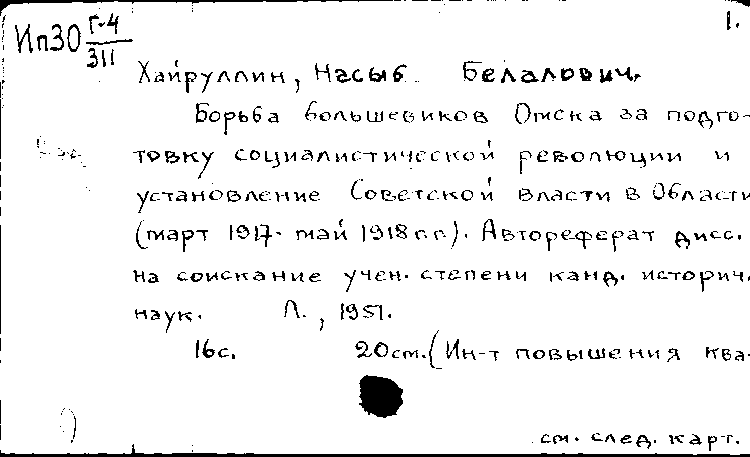 1.
Ип30 Г-4
311
Хайруллин, Насыб Белалович.
Борьба большевиков Омска за подго-
товку социалистической революции и
установление Советской власти в Области
(март 1917- май 1918 г.г.). Автореферат дисс.
на соискание учен. степени канд. историч.
наук. Л., 1951.
16с. 20см. (Ин-т повышения ква-
см. след. карт.